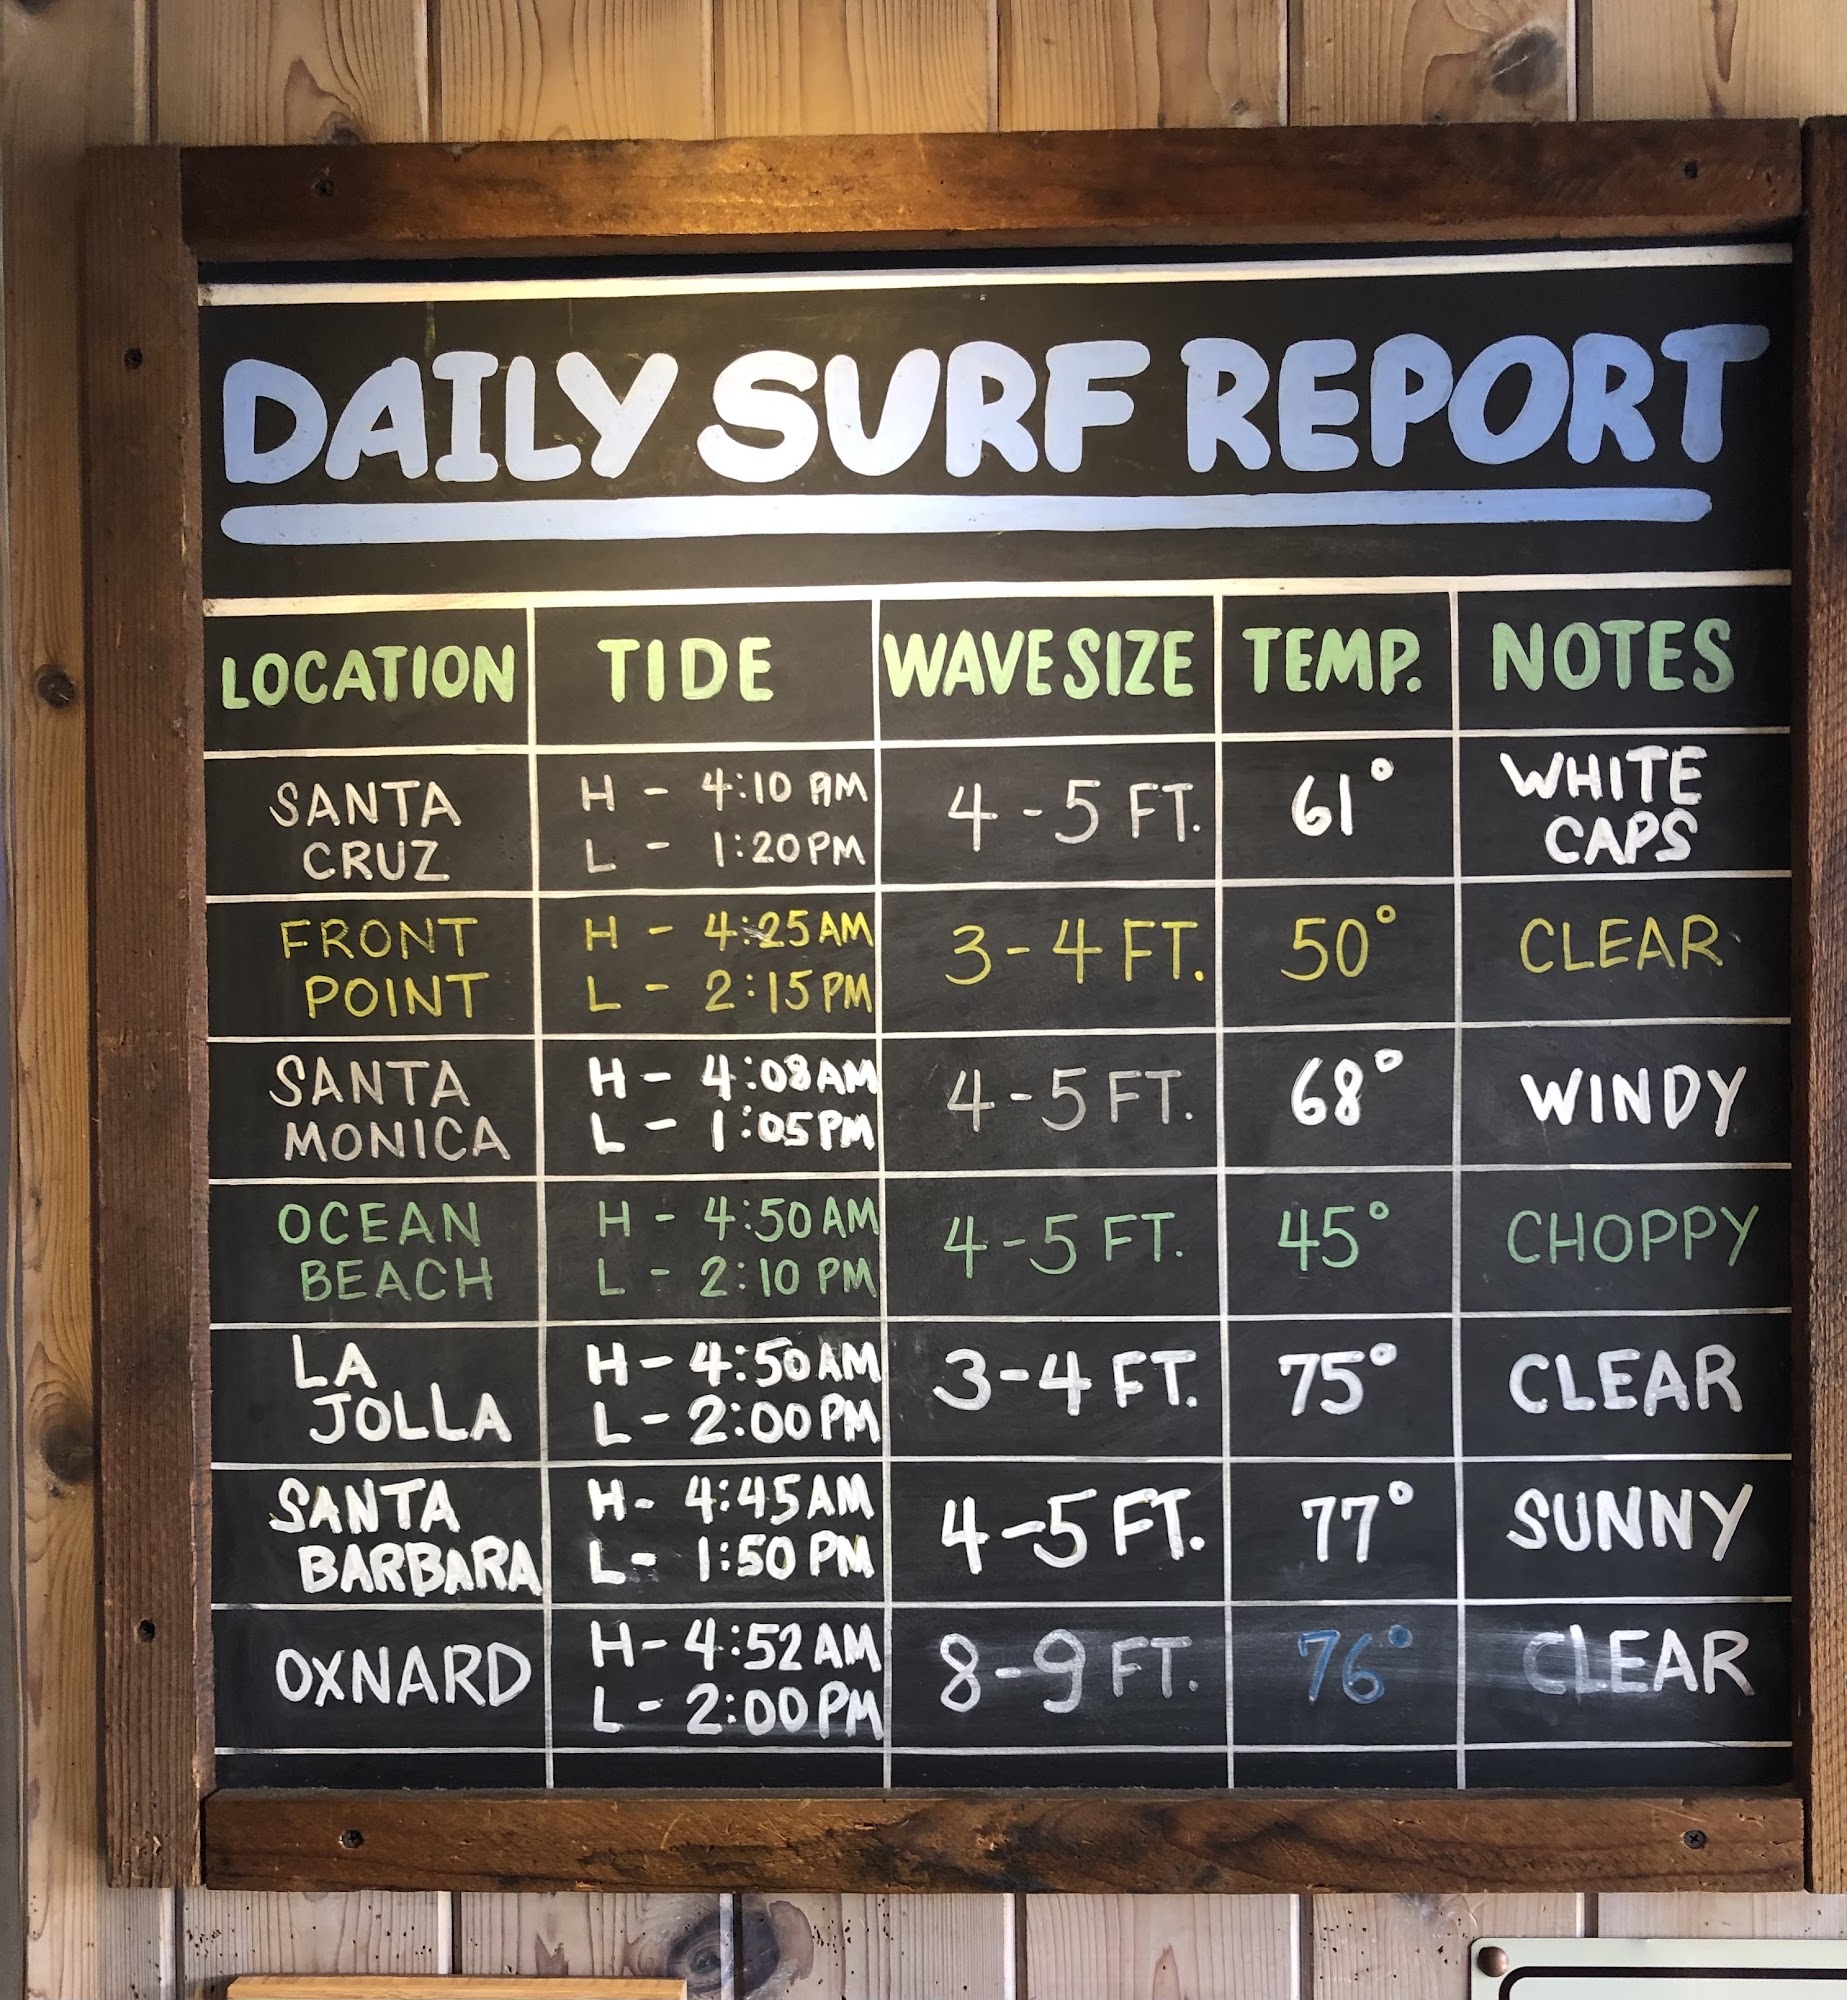 DAILY SURF REPORT
LOCATION TIDE WAVE SIZE TEMP. NOTES
SANTA CRUZ H - 4:10 AM L - 1:20 PM 4-5 FT. 61° WHITE CAPS
FRONT POINT H - 4:25 AM L - 2:15 PM 3-4 FT. 50° CLEAR
SANTA MONICA H - 4:08 AM L - 1:05 PM 4-5 FT. 68° WINDY
OCEAN BEACH H - 4:50 AM L - 2:10 PM 4-5 FT. 45° CHOPPY
LA JOLLA H - 4:50 AM L - 2:00 PM 3-4 FT. 75° CLEAR
SANTA BARBARA H - 4:45 AM L - 1:50 PM 4-5 FT. 77° SUNNY
OXNARD H - 4:52 AM L - 2:00 PM 8-9 FT. 76° CLEAR